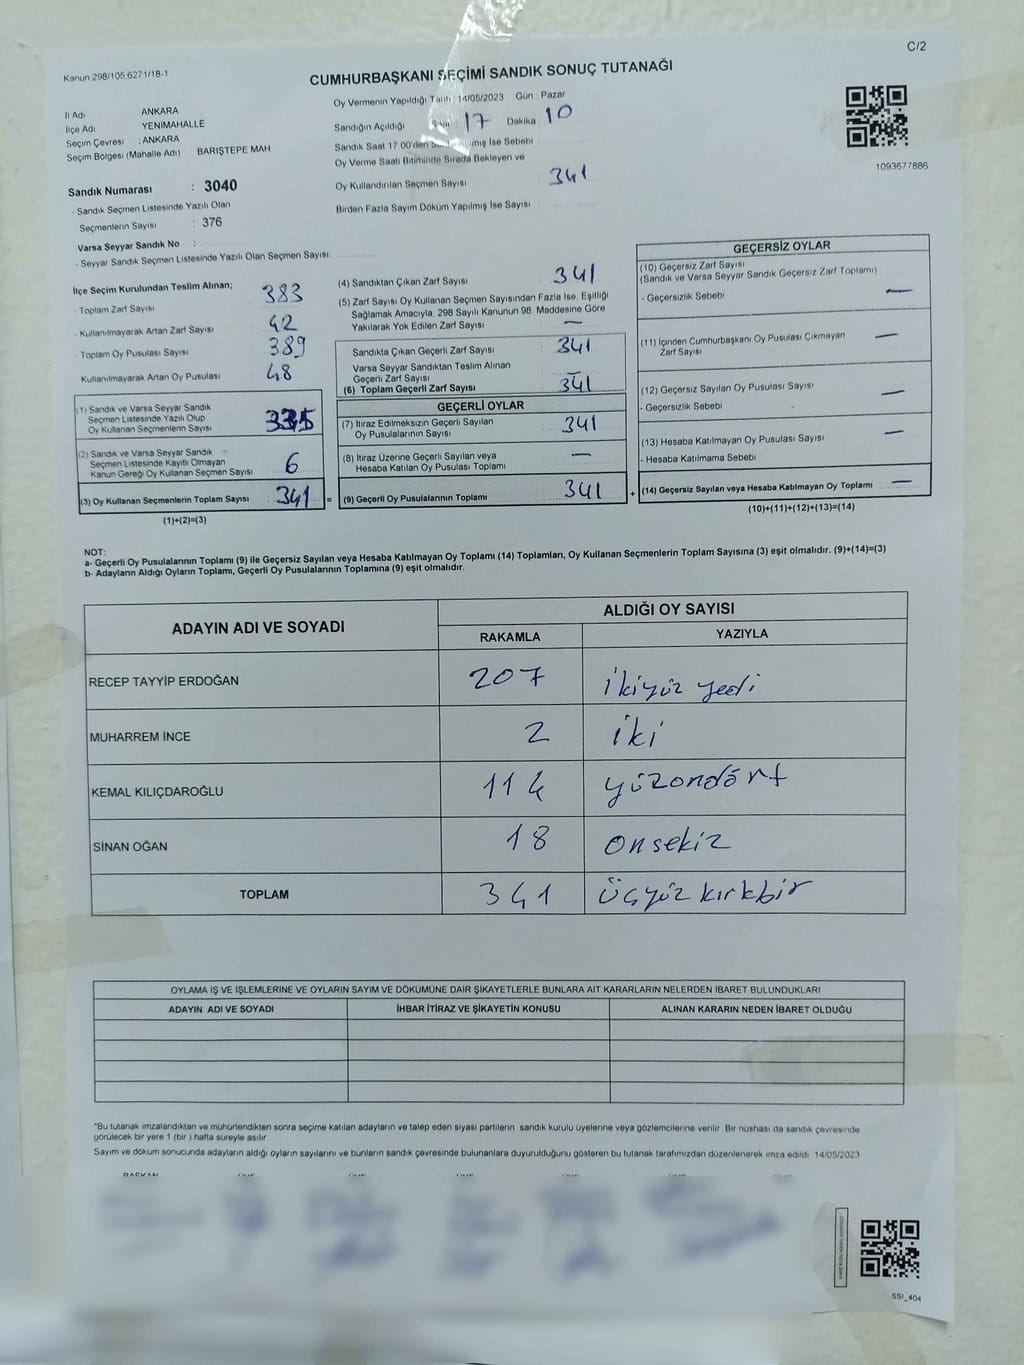 C/2
Kanun 298/105,6271/18-1
CUMHURBAŞKANI SEÇİMİ SANDIK SONUÇ TUTANAĞI
İl Adı ANKARA
İlçe Adı YENİMAHALLE
Seçim Çevresi : ANKARA
Seçim Bölgesi (Mahalle Adı) BARIŞTEPE MAH
Oy Vermenin Yapıldığı Tarih 14/05/2023 Gün Pazar
Sandığın Açıldığı 17 Dakika 10
Sandık Saat 17:00'den İse Sebebi
Oy Verme Saati Bitiminde Sırada Bekleyen ve
Oy Kullandırılan Seçmen Sayısı 341
Birden Fazla Sayım Döküm Yapılmış İse Sayısı
1093677886
Sandık Numarası : 3040
- Sandık Seçmen Listesinde Yazılı Olan
Seçmenlerin Sayısı : 376
Varsa Seyyar Sandık No :
- Seyyar Sandık Seçmen Listesinde Yazılı Olan Seçmen Sayısı
İlçe Seçim Kurulundan Teslim Alınan;
- Toplam Zarf Sayısı 383
- Kullanılmayarak Artan Zarf Sayısı 42
- Toplam Oy Pusulası Sayısı 389
Kullanılmayarak Artan Oy Pusulası 48
(1) Sandık ve Varsa Seyyar Sandık
Seçmen Listesinde Yazılı Olup
Oy Kullanan Seçmenlerin Sayısı 335
(2) Sandık ve Varsa Seyyar Sandık
Seçmen Listesinde Kayıtlı Olmayan
Kanun Gereği Oy Kullanan Seçmen Sayısı 6
(3) Oy Kullanan Seçmenlerin Toplam Sayısı 341 =
(1)+(2)=(3)
(4) Sandıktan Çıkan Zarf Sayısı 341
(5) Zarf Sayısı Oy Kullanan Seçmen Sayısından Fazla İse, Eşitliği
Sağlamak Amacıyla, 298 Sayılı Kanunun 98 Maddesine Göre
Yakılarak Yok Edilen Zarf Sayısı —
Sandıkta Çıkan Geçerli Zarf Sayısı 341
Varsa Seyyar Sandıktan Teslim Alınan
Geçerli Zarf Sayısı —
(6) Toplam Geçerli Zarf Sayısı 341
GEÇERLİ OYLAR
(7) İtiraz Edilmeksizin Geçerli Sayılan
Oy Pusulalarının Sayısı 341
(8) İtiraz Üzerine Geçerli Sayılan veya
Hesaba Katılan Oy Pusulası Toplamı —
(9) Geçerli Oy Pusulalarının Toplamı 341 +
GEÇERSİZ OYLAR
(10) Geçersiz Zarf Sayısı
(Sandık ve Varsa Seyyar Sandık Geçersiz Zarf Toplamı)
- Geçersizlik Sebebi —
(11) İçinden Cumhurbaşkanı Oy Pusulası Çıkmayan
Zarf Sayısı —
(12) Geçersiz Sayılan Oy Pusulası Sayısı —
- Geçersizlik Sebebi
(13) Hesaba Katılmayan Oy Pusulası Sayısı —
- Hesaba Katılmama Sebebi
(14) Geçersiz Sayılan veya Hesaba Katılmayan Oy Toplamı —
(10)+(11)+(12)+(13)=(14)
NOT:
a- Geçerli Oy Pusulalarının Toplamı (9) ile Geçersiz Sayılan veya Hesaba Katılmayan Oy Toplamı (14) Toplamları, Oy Kullanan Seçmenlerin Toplam Sayısına (3) eşit olmalıdır. (9)+(14)=(3)
b- Adayların Aldığı Oyların Toplamı, Geçerli Oy Pusulalarının Toplamına (9) eşit olmalıdır.
ADAYIN ADI VE SOYADI ALDIĞI OY SAYISI
RAKAMLA YAZIYLA
RECEP TAYYİP ERDOĞAN 207 ikiyüz yedi
MUHARREM İNCE 2 iki
KEMAL KILIÇDAROĞLU 114 yüzondört
SİNAN OĞAN 18 onsekiz
TOPLAM 341 üçyüz kırkbir
OYLAMA İŞ VE İŞLEMLERİNE VE OYLARIN SAYIM VE DÖKÜMÜNE DAİR ŞİKAYETLERLE BUNLARA AİT KARARLARIN NELERDEN İBARET BULUNDUKLARI
ADAYIN ADI VE SOYADI İHBAR İTİRAZ VE ŞİKAYETİN KONUSU ALINAN KARARIN NEDEN İBARET OLDUĞU
*Bu tutanak imzalandıktan ve mühürlendikten sonra seçime katılan adayların ve talep eden siyasi partilerin sandık kurulu üyelerine veya gözlemcilerine verilir. Bir nüshası da sandık çevresinde
görülecek bir yere 1 (bir) hafta süreyle asılır
Sayım ve döküm sonucunda adayların aldığı oyların sayılarını ve bunların sandık çevresinde bulunanlara duyurulduğunu gösteren bu tutanak tarafımızdan düzenlenerek imza edildi 14/05/2023
BAŞKAN
SSI_404